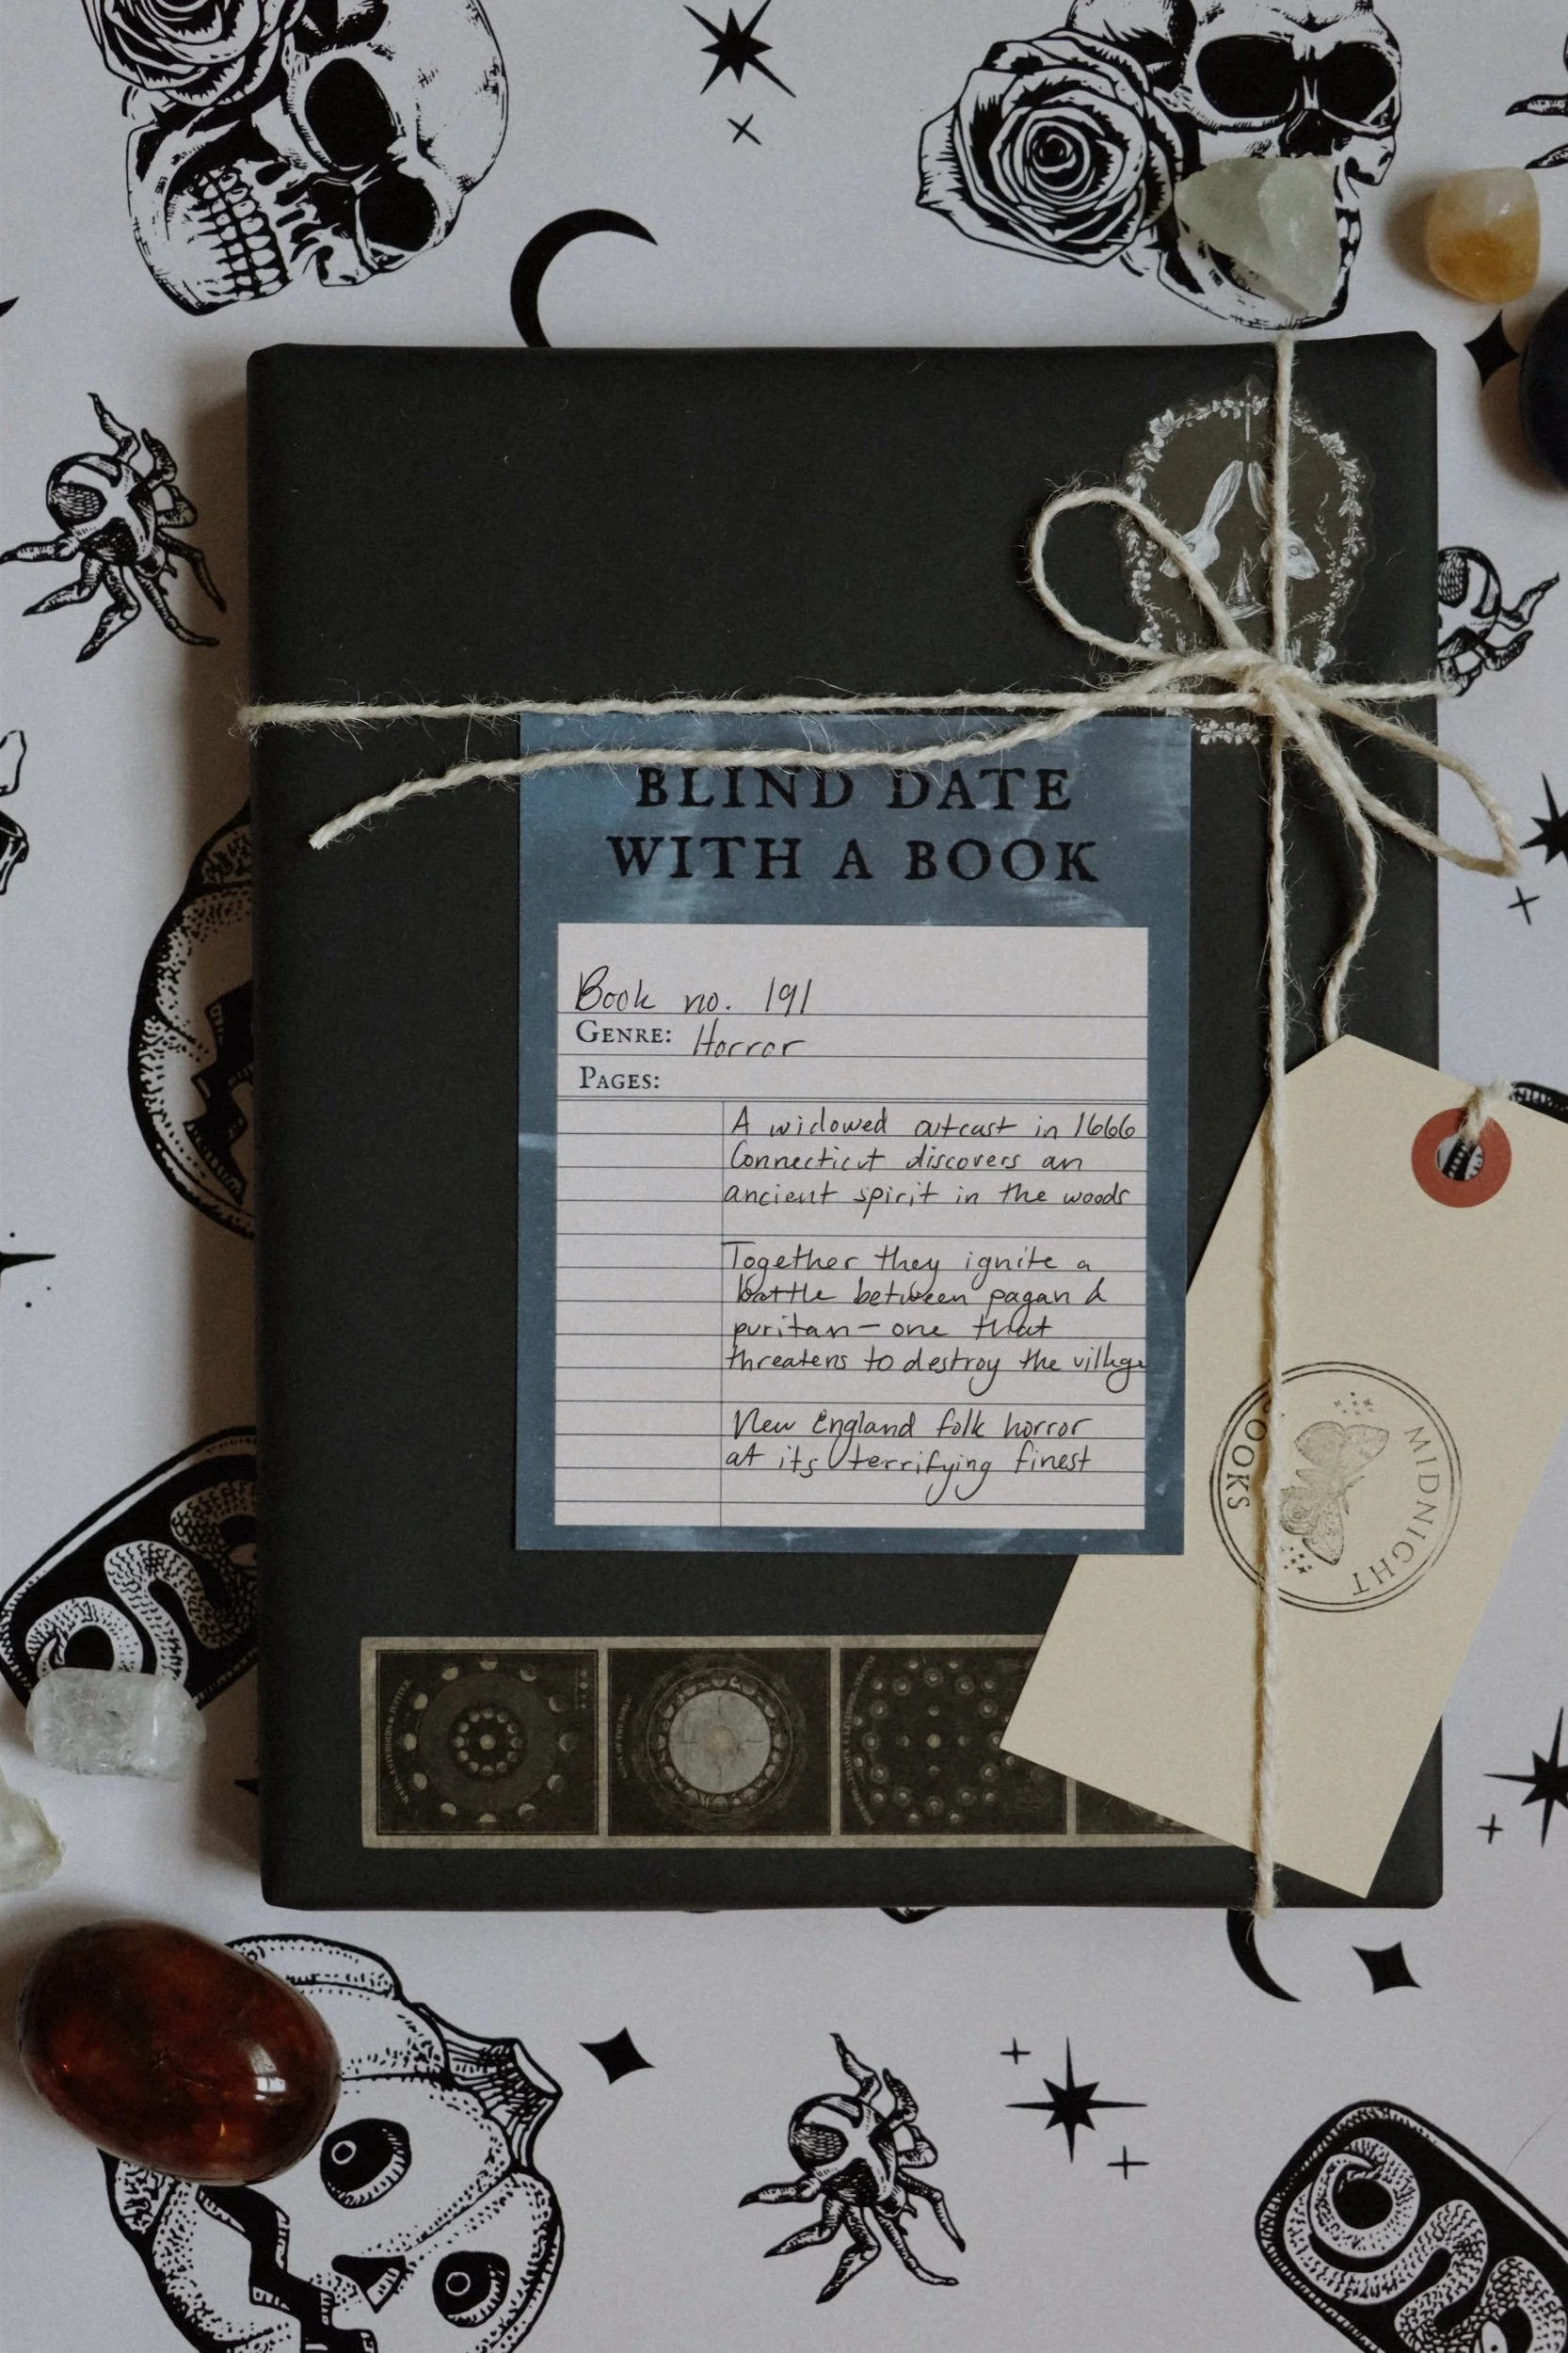 BLIND DATE
WITH A BOOK
Book no. 191
GENRE: Horror
PAGES:
A widowed outcast in 1666
Connecticut discovers an
ancient spirit in the woods
Together they ignite a
battle between pagan &
puritan — one that
threatens to destroy the village
New England folk horror
at its terrifying finest
MIDNIGHT
BOOKS